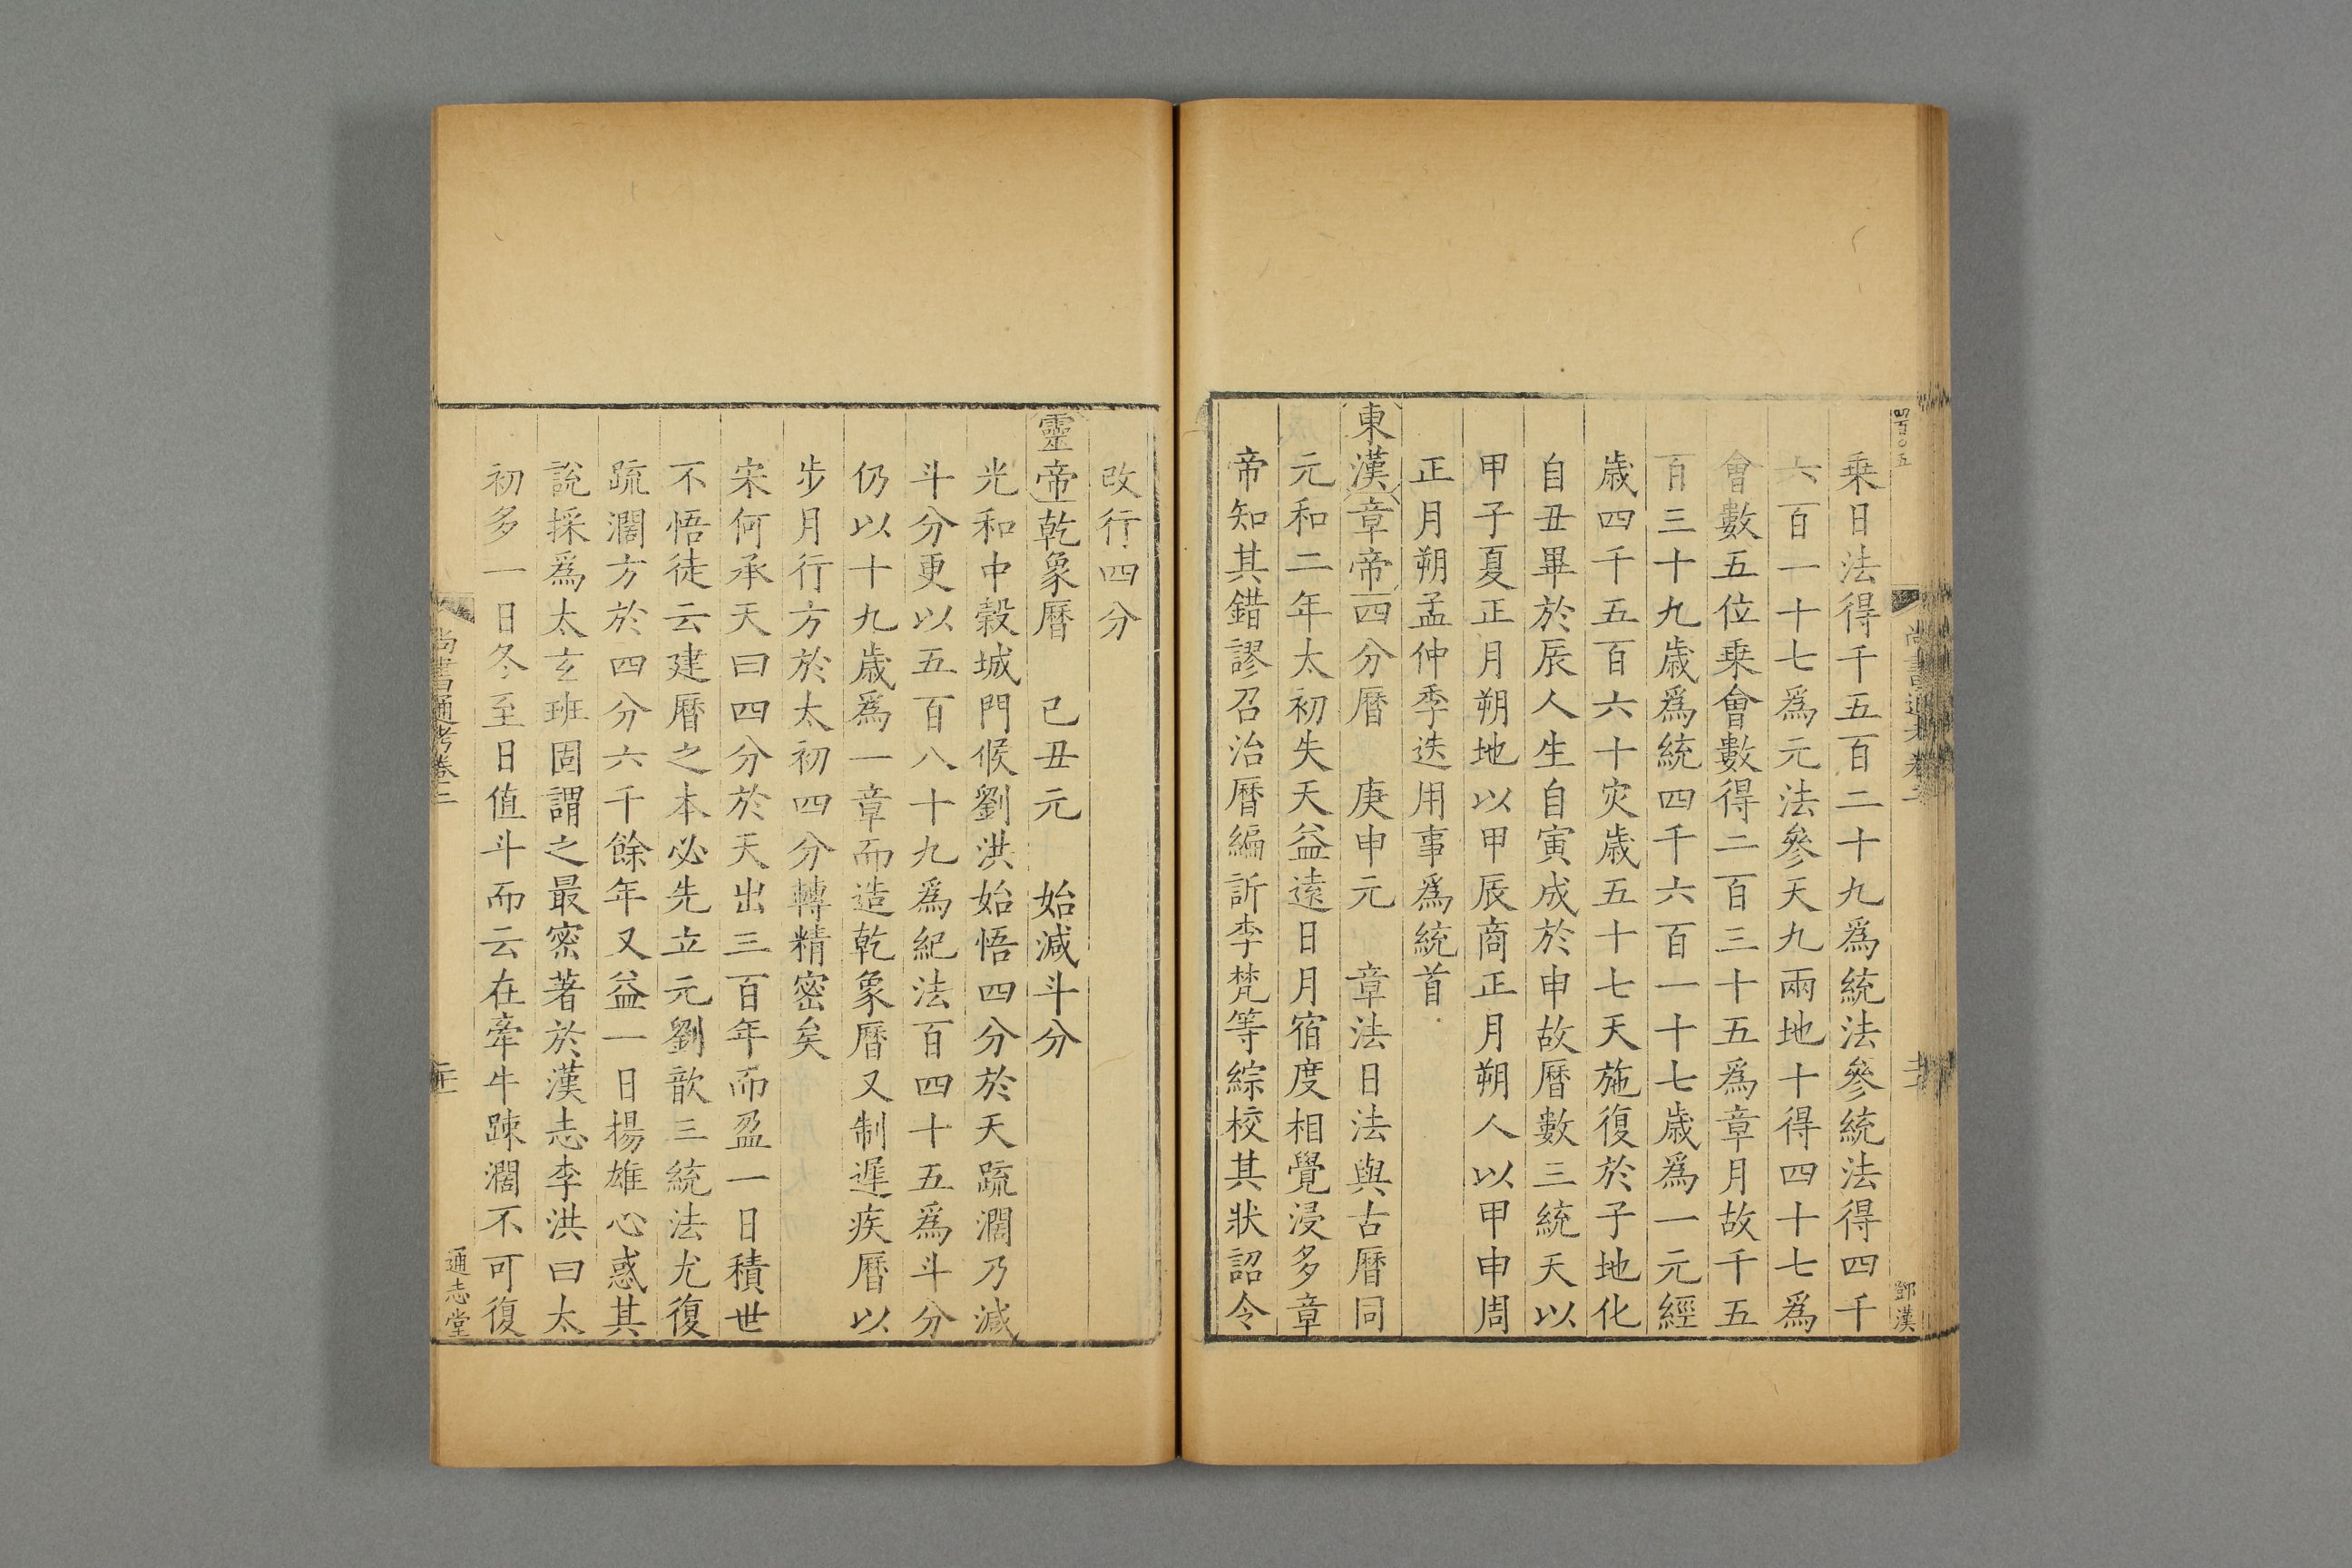 乗日法得千五百二十九爲統法參統法得四千
六百一十七爲元法參天九兩地十得四十七爲
會數五位乗會數得二百三十五爲章月故千五
百三十九歳爲統四千六百一十七歳爲一元經
歳四千五百六十灾歳五十七天施復於子地化
自丑畢於辰人生自寅成於申故曆數三統天以
甲子夏正月朔地以甲辰商正月朔人以甲申周
正月朔孟仲季迭用事爲統首
東漢章帝四分曆 庚申元 章法日法與古曆同
元和二年太初失天益遠日月宿度相覺浸多章
帝知其錯謬召治曆編訢李梵等綜校其狀詔令
改行四分
靈帝乾象曆 己丑元 始減斗分
光和中穀城門候劉洪始悟四分於天疏濶乃減
斗分更以五百八十九爲紀法百四十五爲斗分
仍以十九歳爲一章而造乾象曆又制遲疾曆以
步月行方於太初四分轉精密矣
宋何承天曰四分於天出三百年而盈一日積世
不悟徒云建曆之本必先立元劉歆三統法尤復
疏濶方於四分六千餘年又益一日揚雄心惑其
說採爲太玄班固謂之最密著於漢志李洪曰太
初多一日冬至日值斗而云在牽牛踈濶不可復
尚書通考卷二
通志堂